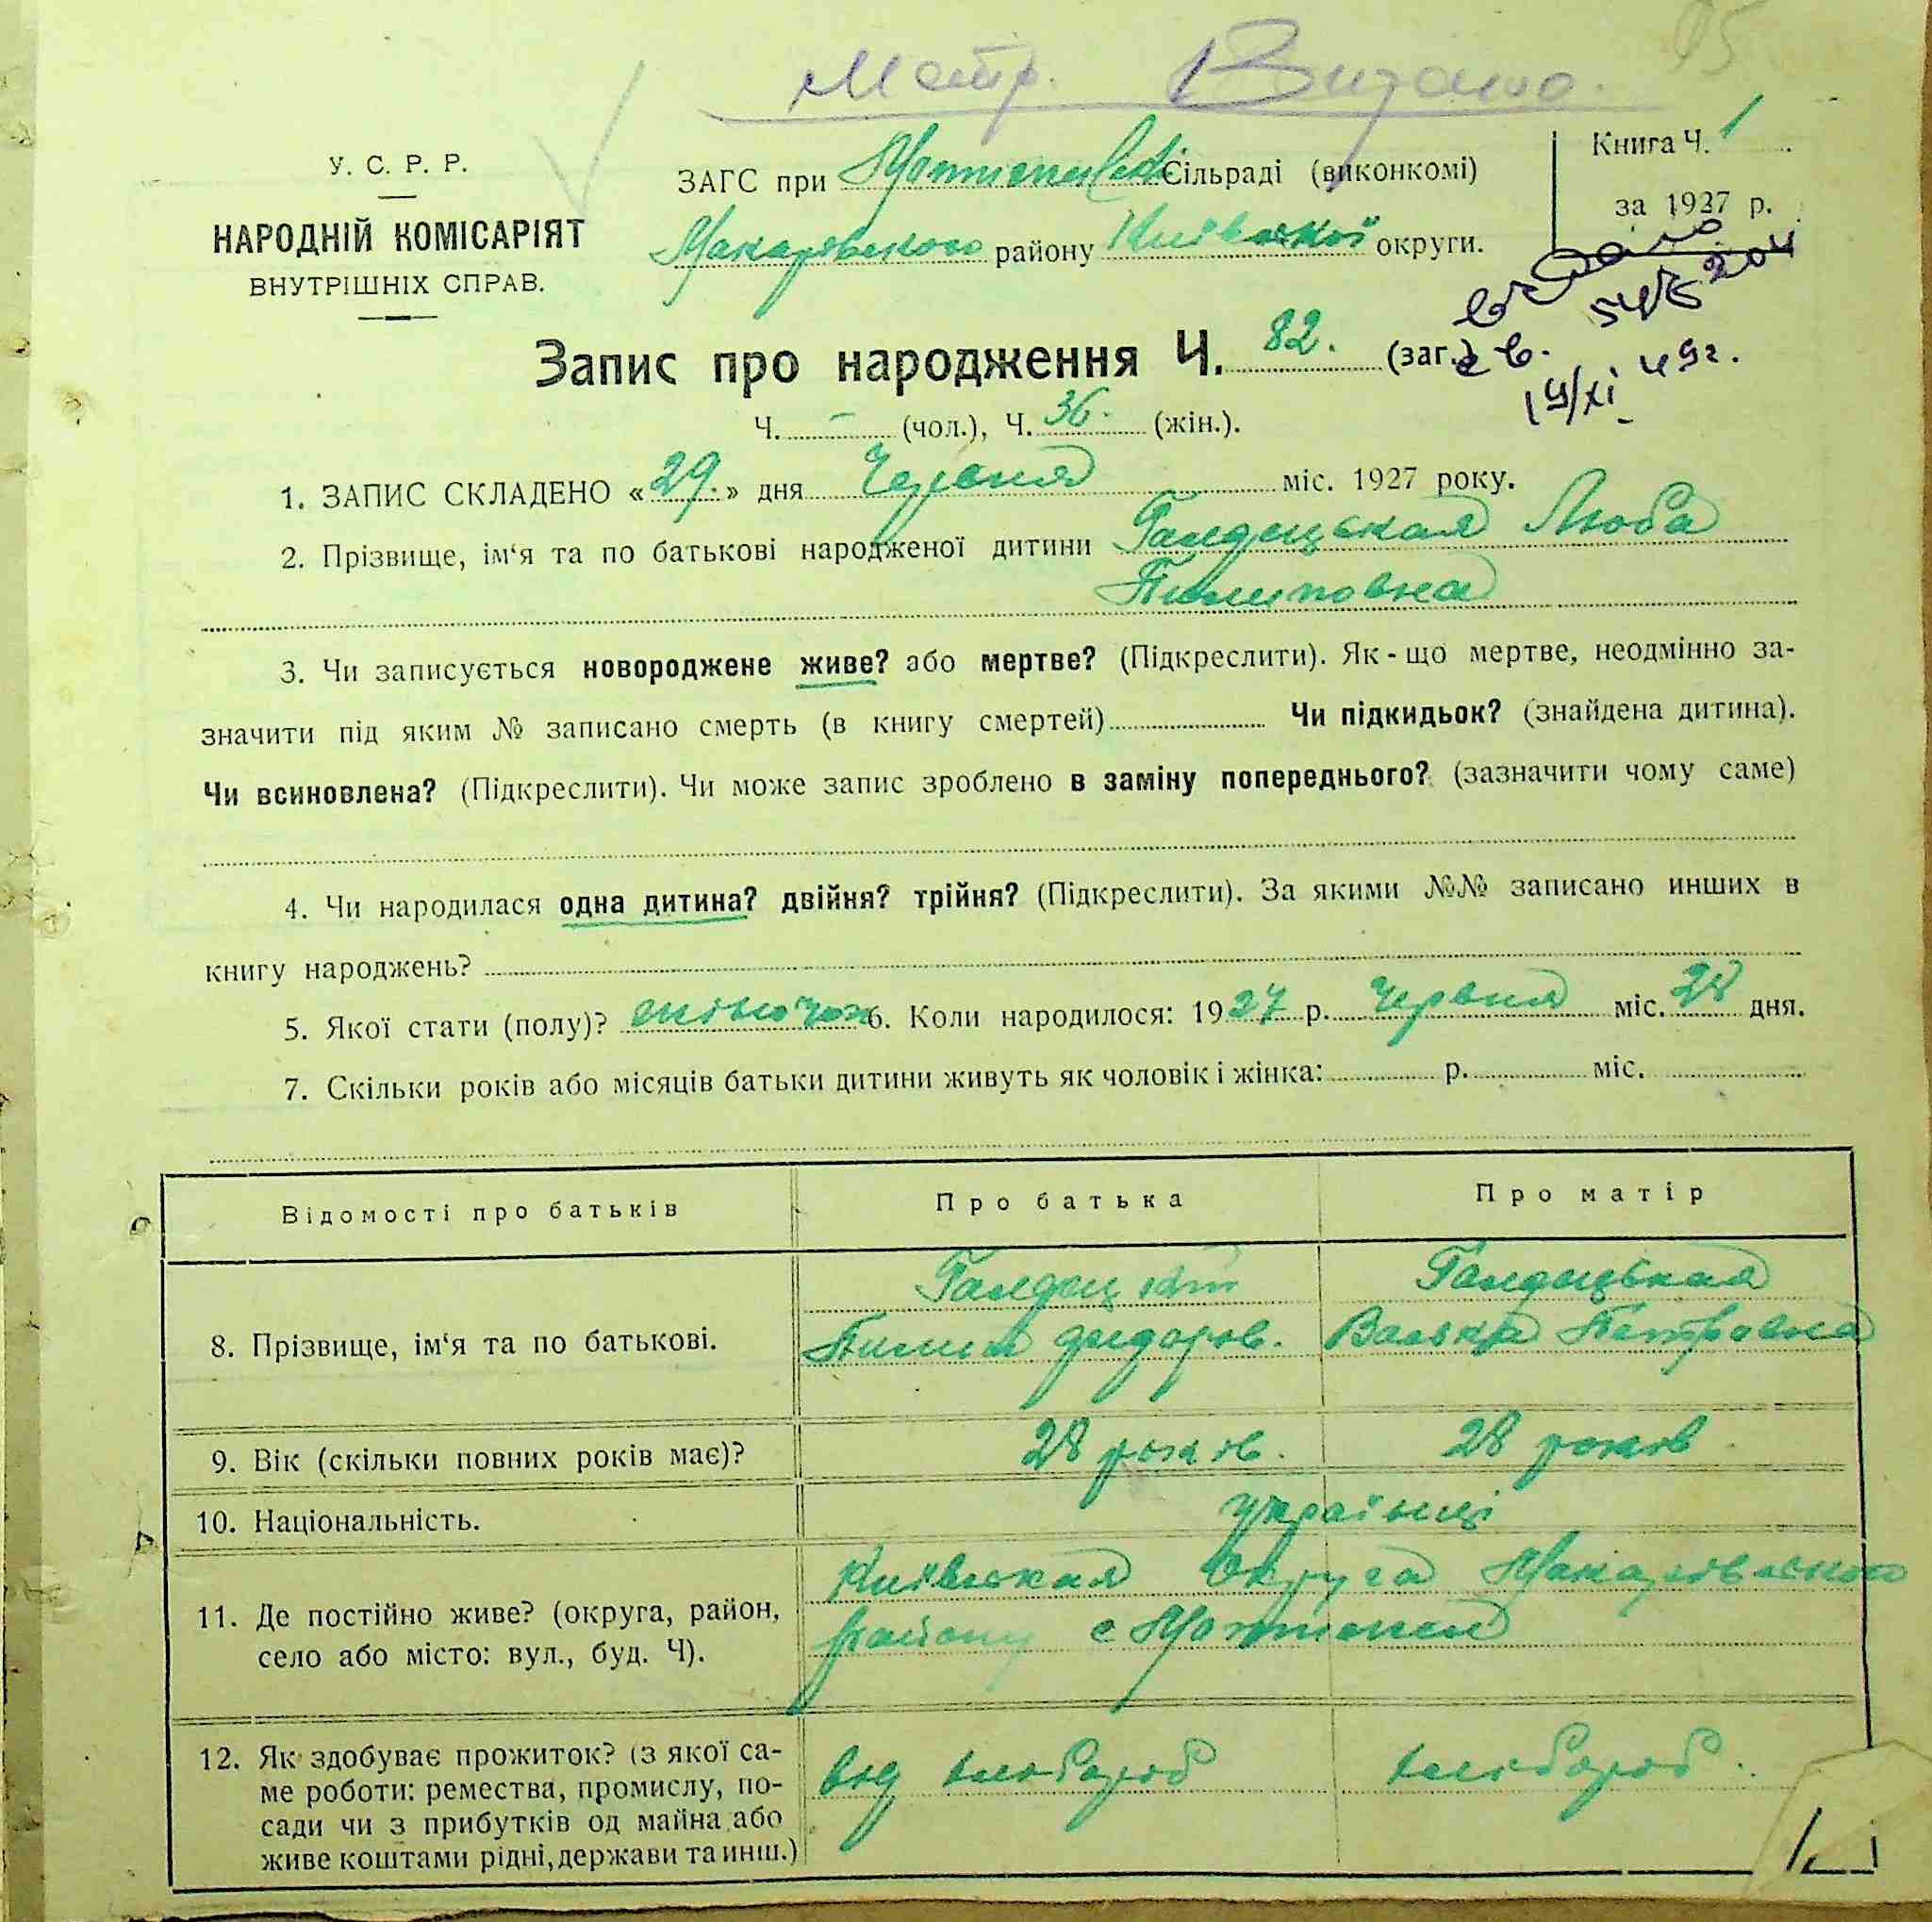 95
Метр. Видано.
У. С. Р. Р.
НАРОДНІЙ КОМІСАРІЯТ
ВНУТРІШНІХ СПРАВ.
ЗАГС при Сільраді (виконкомі)
Макарівського району Київської округи.
Книга Ч. 1
за 1927 р.
Запис про народження Ч. 82. (заг.)
св.
19/XI 49г.
Ч. – (чол.), Ч. 36. (жін.).
1. ЗАПИС СКЛАДЕНО «29.» дня Червня міс. 1927 року.
2. Прізвище, ім‘я та по батькові народженої дитини Галдецькая Люба
Пилиповна
3. Чи записується новороджене живе? або мертве? (Підкреслити). Як-що мертве, неодмінно за-
значити під яким № записано смерть (в книгу смертей) Чи підкидьок? (знайдена дитина).
Чи всиновлена? (Підкреслити). Чи може запис зроблено в заміну попереднього? (зазначити чому саме)
4. Чи народилася одна дитина? двійня? трійня? (Підкреслити). За якими №№ записано инших в
книгу народжень?
5. Якої стати (полу)? жіночої 6. Коли народилося: 1927 р. Червня міс. 28 дня.
7. Скільки років або місяців батьки дитини живуть як чоловік і жінка: р. міс.
Відомості про батьків Про батька Про матір
8. Прізвище, ім‘я та по батькові.
Галдецький Галдецькая
Пилип Фидоров. Петровна
9. Вік (скільки повних років має)? 28 років. 28 років
10. Національність. українці
11. Де постійно живе? (округа, район,
село або місто: вул., буд. Ч).
Київская округа Макарівского
району с Мотижин
12. Як здобуває прожиток? (з якої са-
ме роботи: ремества, промислу, по-
сади чи з прибутків од майна або
живе коштами рідні, держави та инш.)
від хлібороб хлібороб.